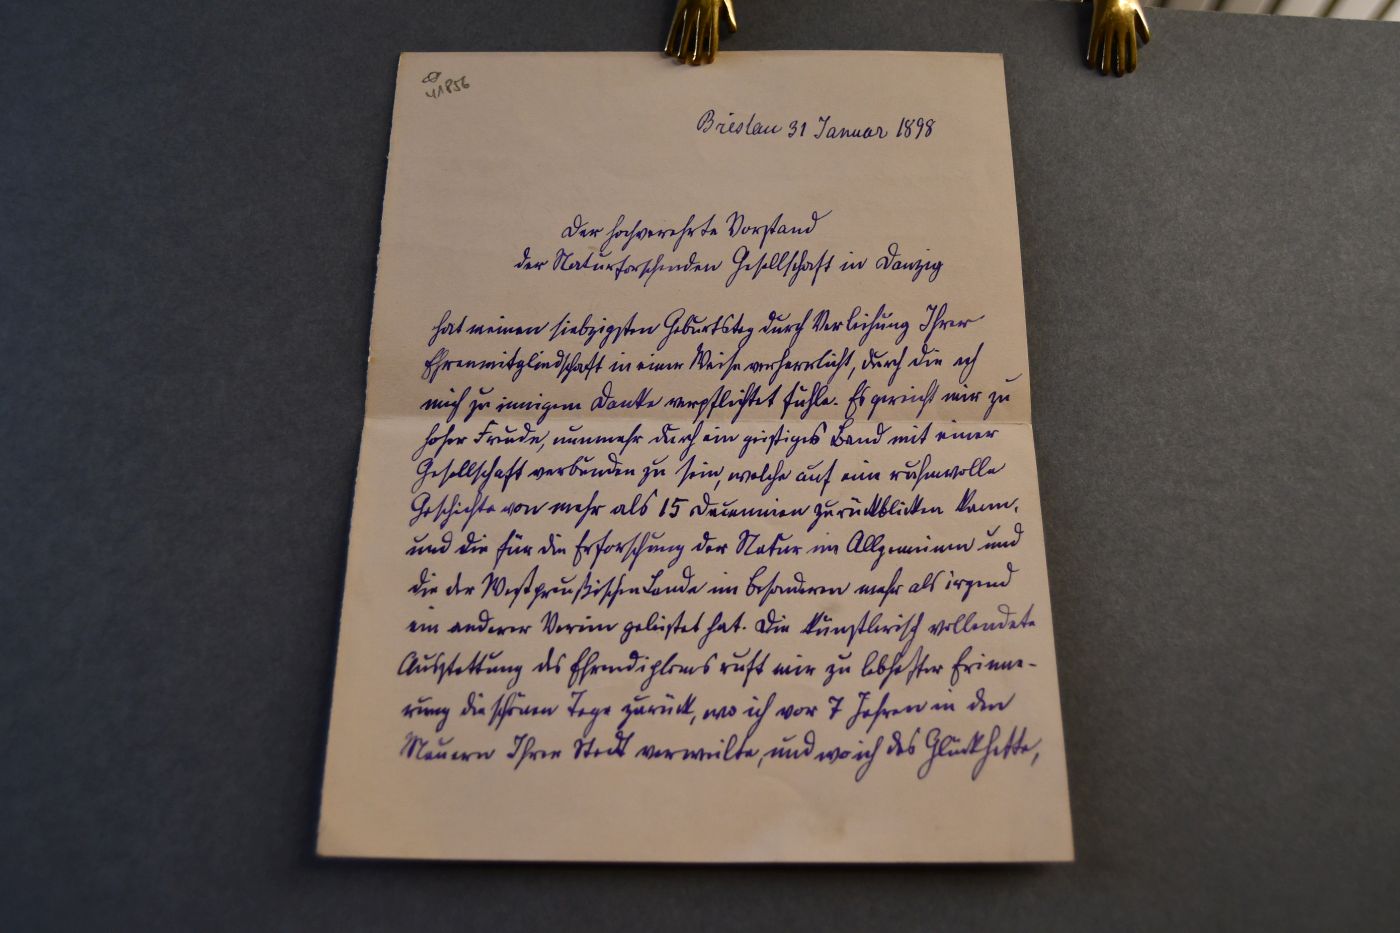 41856
Breslau 31 Januar 1898
Der hochverehrte Vorstand
der Naturforschenden Gesellschaft in Danzig
hat meinen siebzigsten Geburtstag durch Verleihung Ihrer
Ehrenmitgliedschaft in einer Weise verherrlicht, durch die ich
mich zu innigem Danke verpflichtet fühle. Es gereicht mir zu
hoher Freude, nunmehr durch ein geistiges Band mit einer
Gesellschaft verbunden zu sein, welche auf eine ruhmvolle
Geschichte von mehr als 15 Decennien zurückblicken kann,
und die für die Erforschung der Natur im Allgemeinen und
die der Westpreußischen Lande im Besonderen mehr als irgend
ein anderer Verein geleistet hat. Die künstlerisch vollendete
Ausstattung des Ehrendiploms ruft mir zu lebhafter Erinne-
rung die schönen Tage zurück, wo ich vor 7 Jahren in den
Mauern Ihrer Stadt verweilte, und wo ich das Glück hatte,